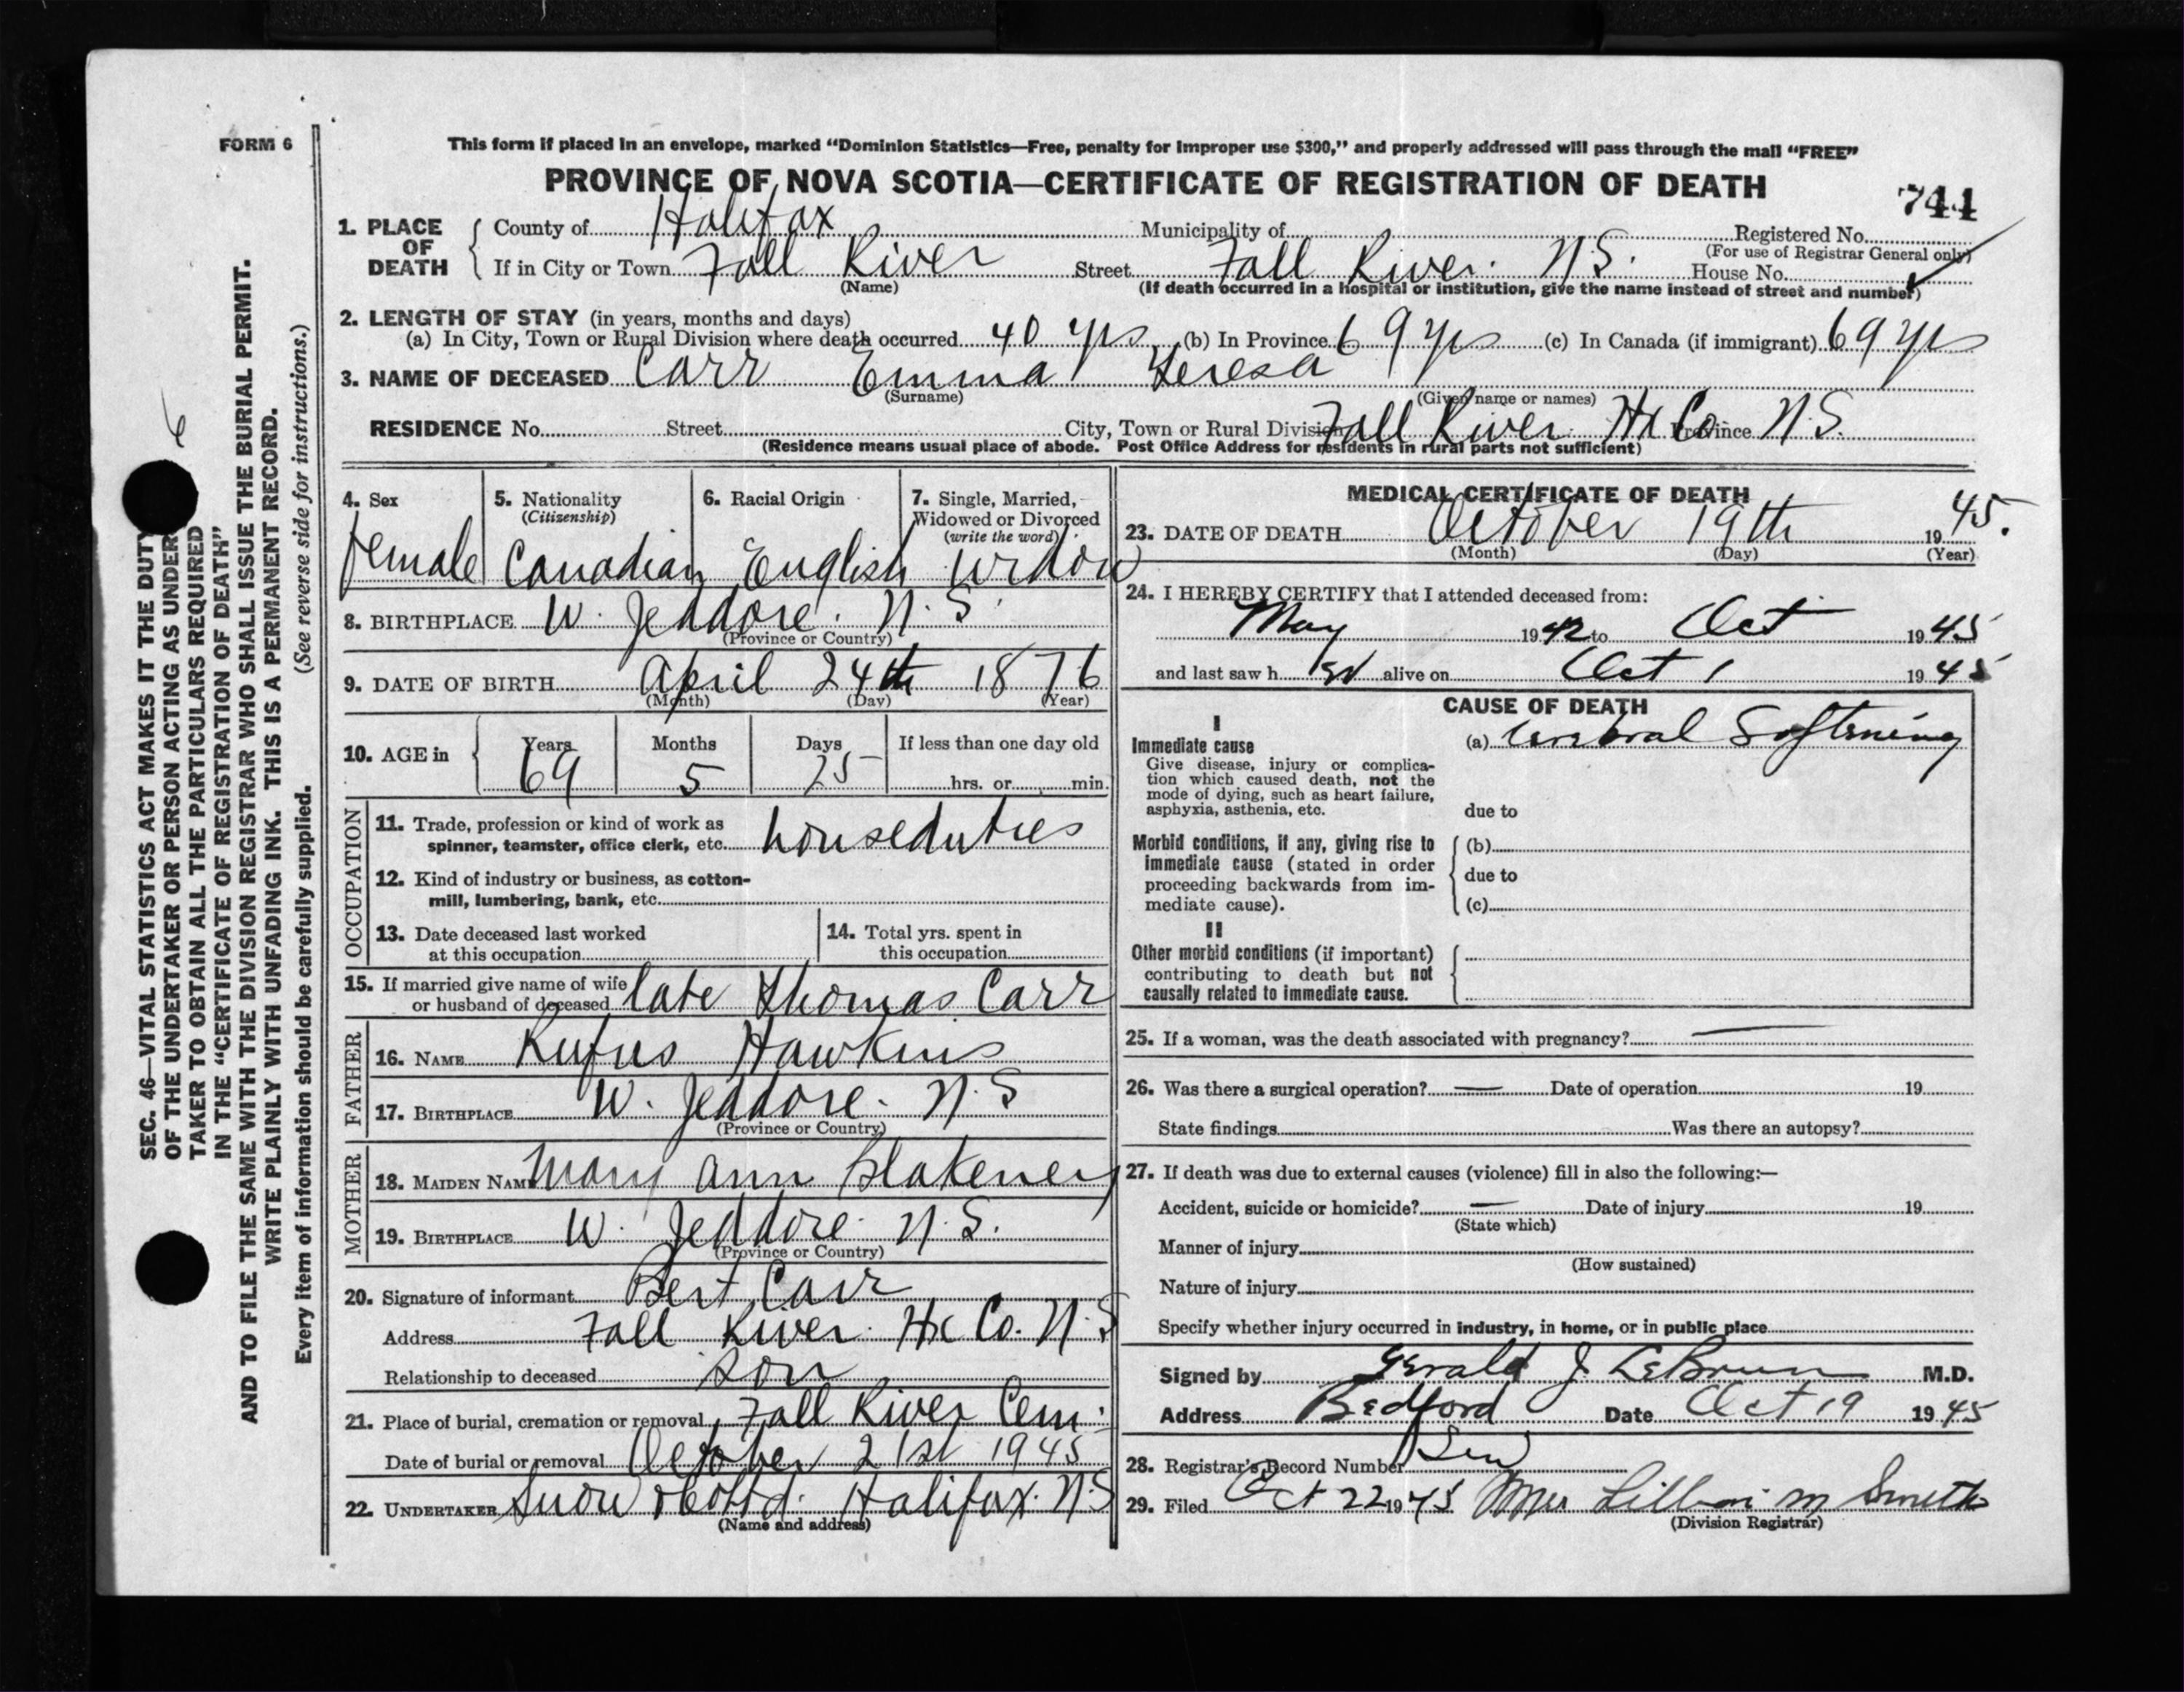 FORM 6
This form if placed in an envelope, marked “Dominion Statistics—Free, penalty for improper use $300,” and properly addressed will pass through the mail “FREE”
PROVINCE OF NOVA SCOTIA—CERTIFICATE OF REGISTRATION OF DEATH
744
1. PLACE OF DEATH
County of Halifax Municipality of Registered No.
(For use of Registrar General only)
If in City or Town Fall River Street Fall River. N.S. House No.
(Name) (If death occurred in a hospital or institution, give the name instead of street and number)
2. LENGTH OF STAY (in years, months and days)
(a) In City, Town or Rural Division where death occurred 40 yrs (b) In Province 69 yrs (c) In Canada (if immigrant) 69 yrs
3. NAME OF DECEASED Carr Emma Teresa
(Surname) (Given name or names)
RESIDENCE No. Street City, Town or Rural Division Fall River Hx Co. Province N.S.
(Residence means usual place of abode. Post Office Address for residents in rural parts not sufficient)
4. Sex 5. Nationality 6. Racial Origin 7. Single, Married,
(Citizenship) Widowed or Divorced
(write the word)
Female Canadian English Widow
8. BIRTHPLACE W. Jeddore. N.S.
(Province or Country)
9. DATE OF BIRTH April 24th 1876
(Month) (Day) (Year)
10. AGE in Years Months Days If less than one day old
69 5 25 hrs. or min.
OCCUPATION
11. Trade, profession or kind of work as
spinner, teamster, office clerk, etc. houseduties
12. Kind of industry or business, as cotton-
mill, lumbering, bank, etc.
13. Date deceased last worked 14. Total yrs. spent in
at this occupation this occupation
15. If married give name of wife
or husband of deceased late Thomas Carr
FATHER
16. NAME Rufus Hawkins
17. BIRTHPLACE W. Jeddore. N.S
(Province or Country)
MOTHER
18. MAIDEN NAME Mary Ann Blakeney
19. BIRTHPLACE W. Jeddore. N.S.
(Province or Country)
20. Signature of informant Bert Carr
Address Fall River. Hx Co. N.S
Relationship to deceased son
21. Place of burial, cremation or removal Fall River Cem.
Date of burial or removal October 21st 1945
22. UNDERTAKER Snow & Co Ltd. Halifax. N.S
(Name and address)
MEDICAL CERTIFICATE OF DEATH
23. DATE OF DEATH October 19th 1945.
(Month) (Day) (Year)
24. I HEREBY CERTIFY that I attended deceased from:
May 1942 to Oct 1945
and last saw her alive on Oct 1 1945
CAUSE OF DEATH
I
Immediate cause (a) Cerebral Softening
Give disease, injury or complica-
tion which caused death, not the
mode of dying, such as heart failure,
asphyxia, asthenia, etc. due to
Morbid conditions, if any, giving rise to (b)
immediate cause (stated in order
proceeding backwards from im- due to
mediate cause). (c)
II
Other morbid conditions (if important)
contributing to death but not
causally related to immediate cause.
25. If a woman, was the death associated with pregnancy? —
26. Was there a surgical operation? — Date of operation 19
State findings Was there an autopsy?
27. If death was due to external causes (violence) fill in also the following:—
Accident, suicide or homicide? — Date of injury 19
(State which)
Manner of injury
(How sustained)
Nature of injury
Specify whether injury occurred in industry, in home, or in public place
Signed by Gerald J. LeBrun M.D.
Address Bedford Date Oct 19 1945
28. Registrar's Record Number
29. Filed Oct 22 1945 Mrs Lillian M Smith
(Division Registrar)
SEC. 46—VITAL STATISTICS ACT MAKES IT THE DUTY
OF THE UNDERTAKER OR PERSON ACTING AS UNDER
TAKER TO OBTAIN ALL THE PARTICULARS REQUIRED
IN THE “CERTIFICATE OF REGISTRATION OF DEATH”
AND TO FILE THE SAME WITH THE DIVISION REGISTRAR WHO SHALL ISSUE THE BURIAL PERMIT.
WRITE PLAINLY WITH UNFADING INK. THIS IS A PERMANENT RECORD.
Every item of information should be carefully supplied. (See reverse side for instructions.)